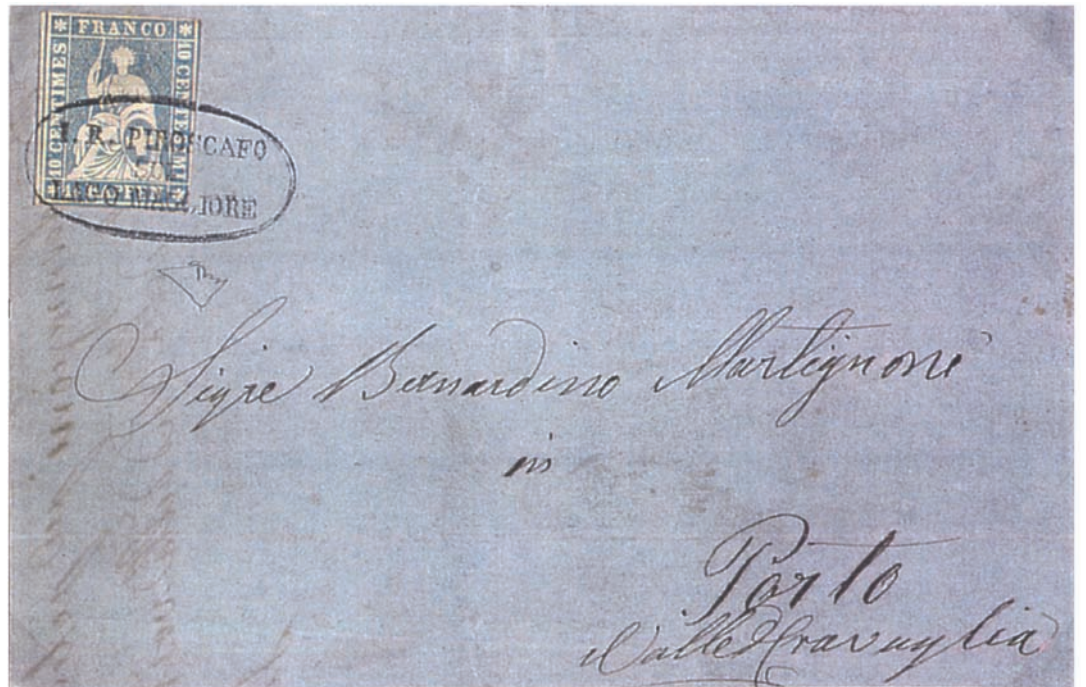 FRANCO
10 CENTIMES
10 CENTESIMI
10 RAPPEN
I. R. PIROSCAFO
SUL
LAGO MAGGIORE
Sigre Bernardino Martignoni
in
Porto
Valle Travaglia